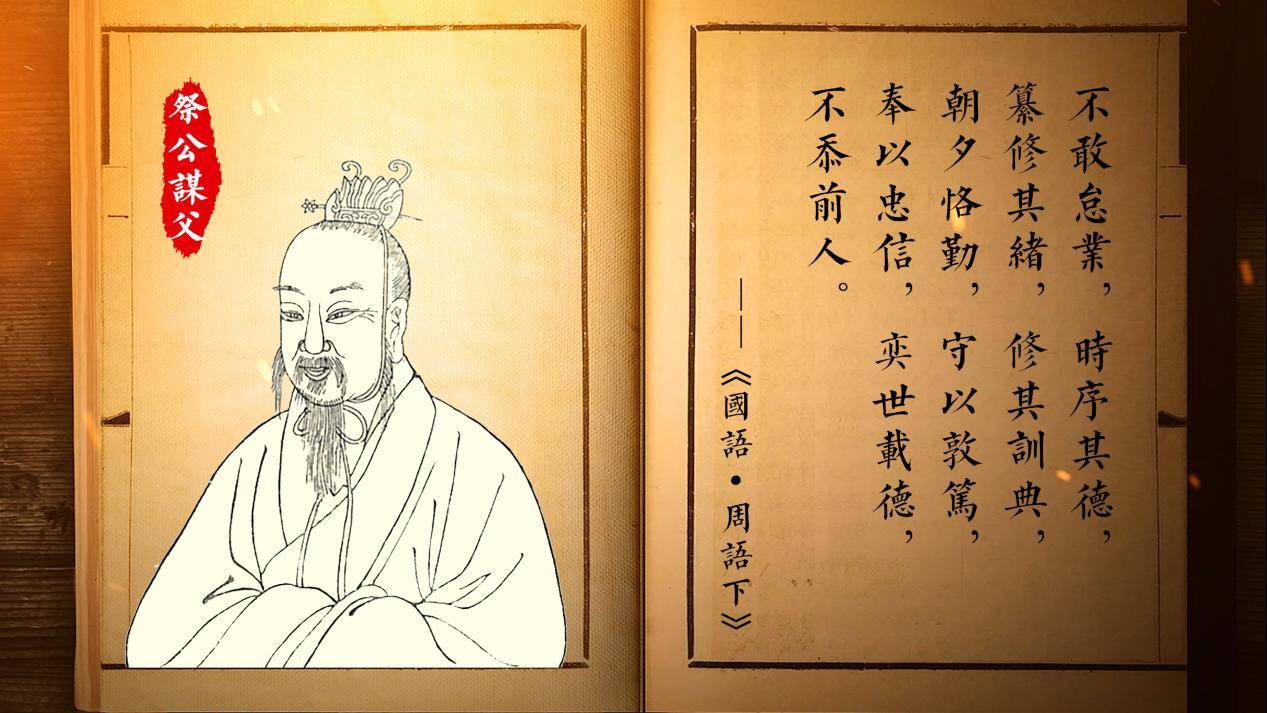 祭公謀父
不敢怠業，時序其德，
纂修其緒，修其訓典，
朝夕恪勤，守以敦篤，
奉以忠信，奕世載德，
不忝前人。
——《國語·周語下》